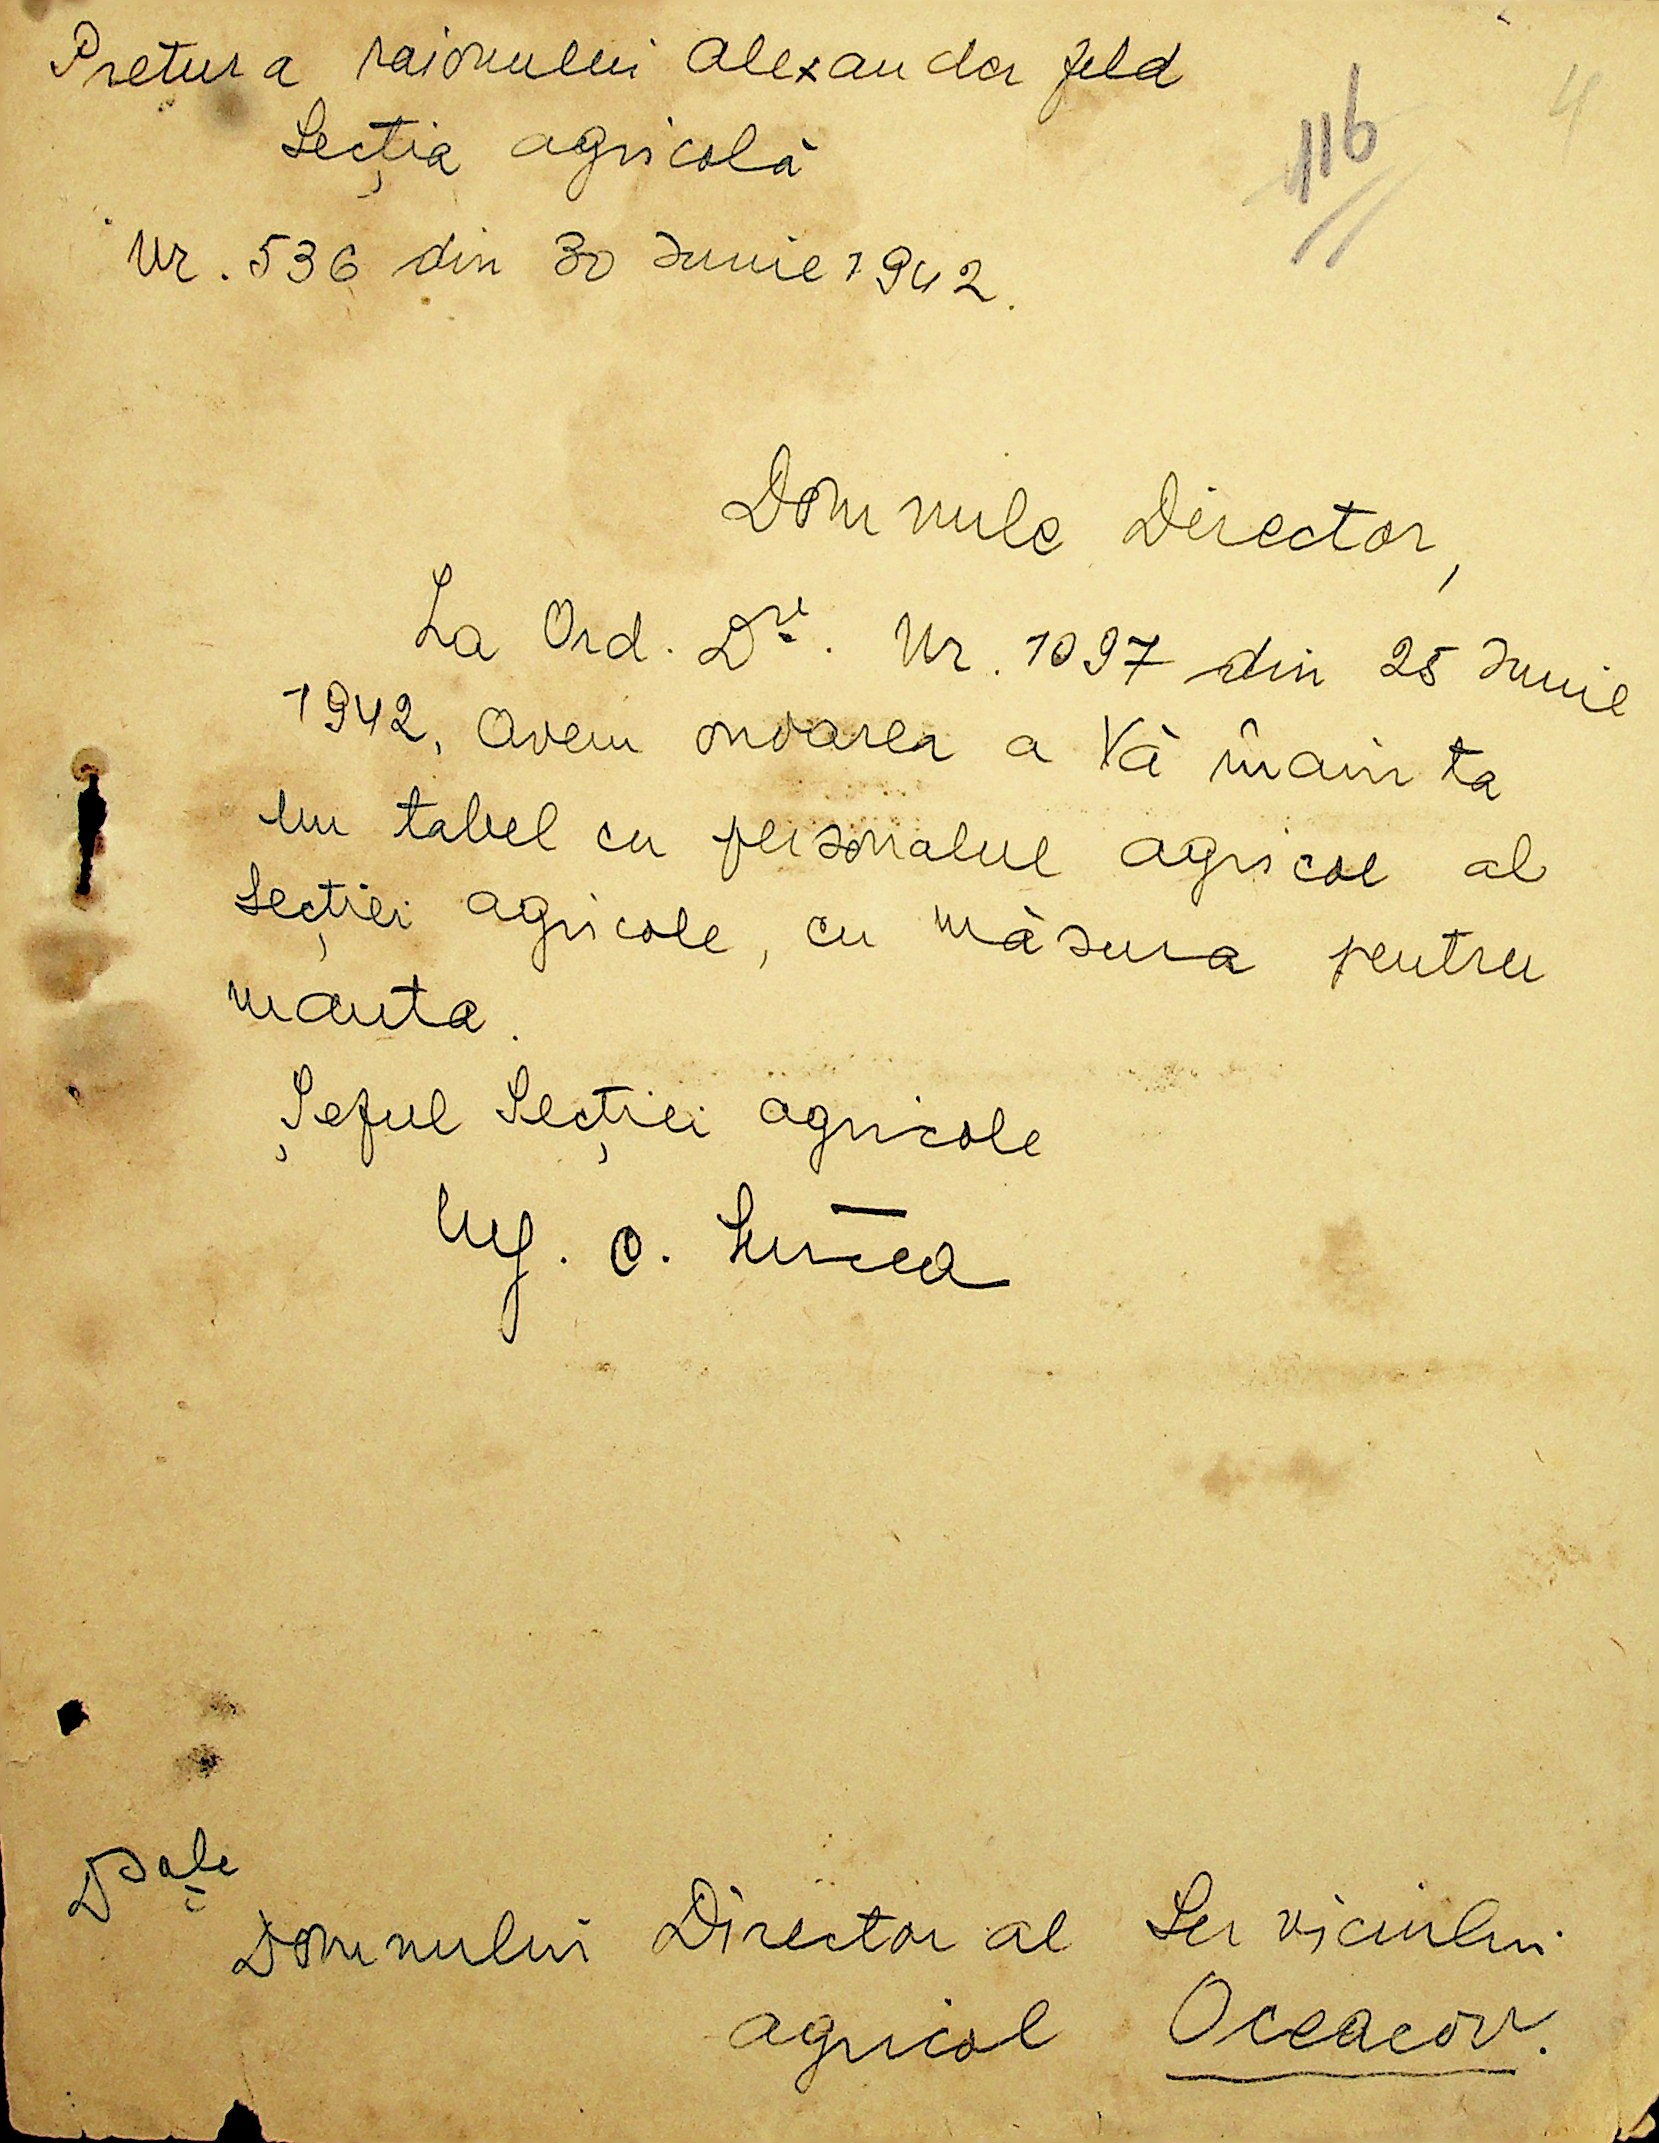 Pretura raionului Alexanderfeld
Secția agricolă
116
4
Nr. 536 din 30 Iunie 1942.
Domnule Director,
La Ord. Dv. Nr. 1097 din 25 Iunie
1942, Avem onoarea a Vă înainta
un tabel cu personalul agricol al
Secției agricole, cu măsura pentru
manta.
Șeful Secției agricole
Ing. C.
Dsale
Domnului Director al Serviciului
agricol Oceacov.